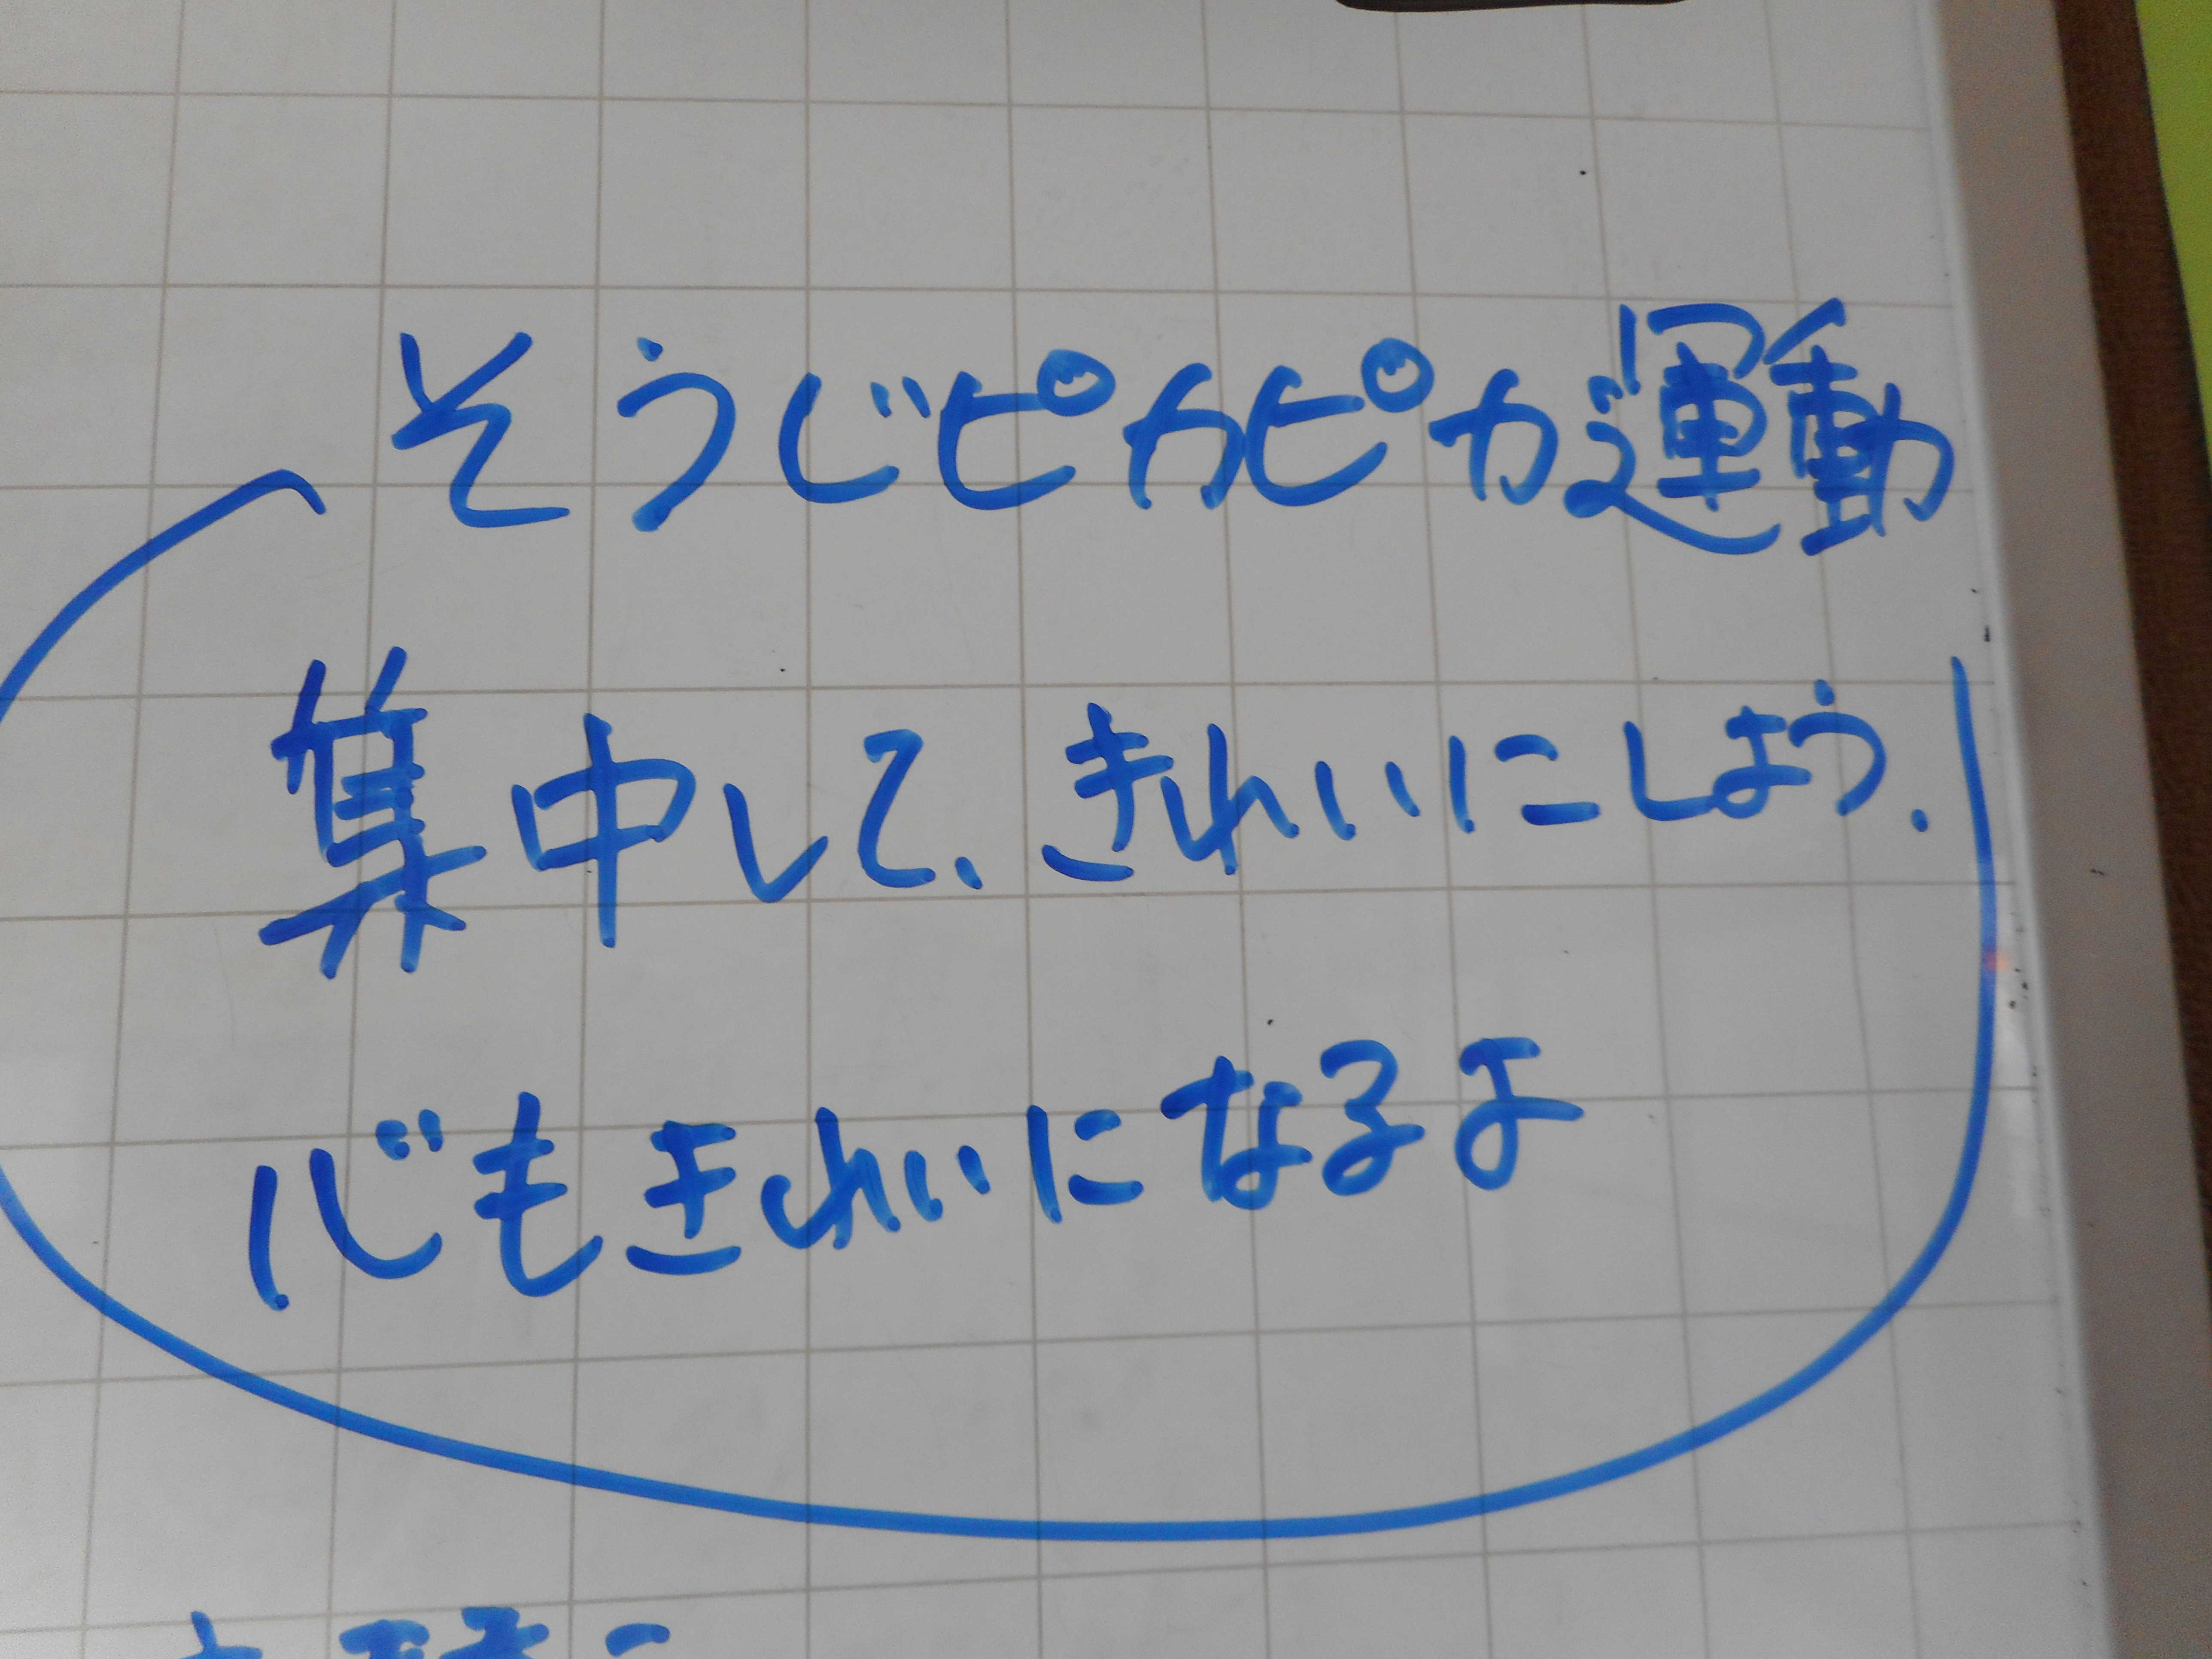 そうじピカピカ運動
集中して、きれいにしよう.
心もきれいになるよ